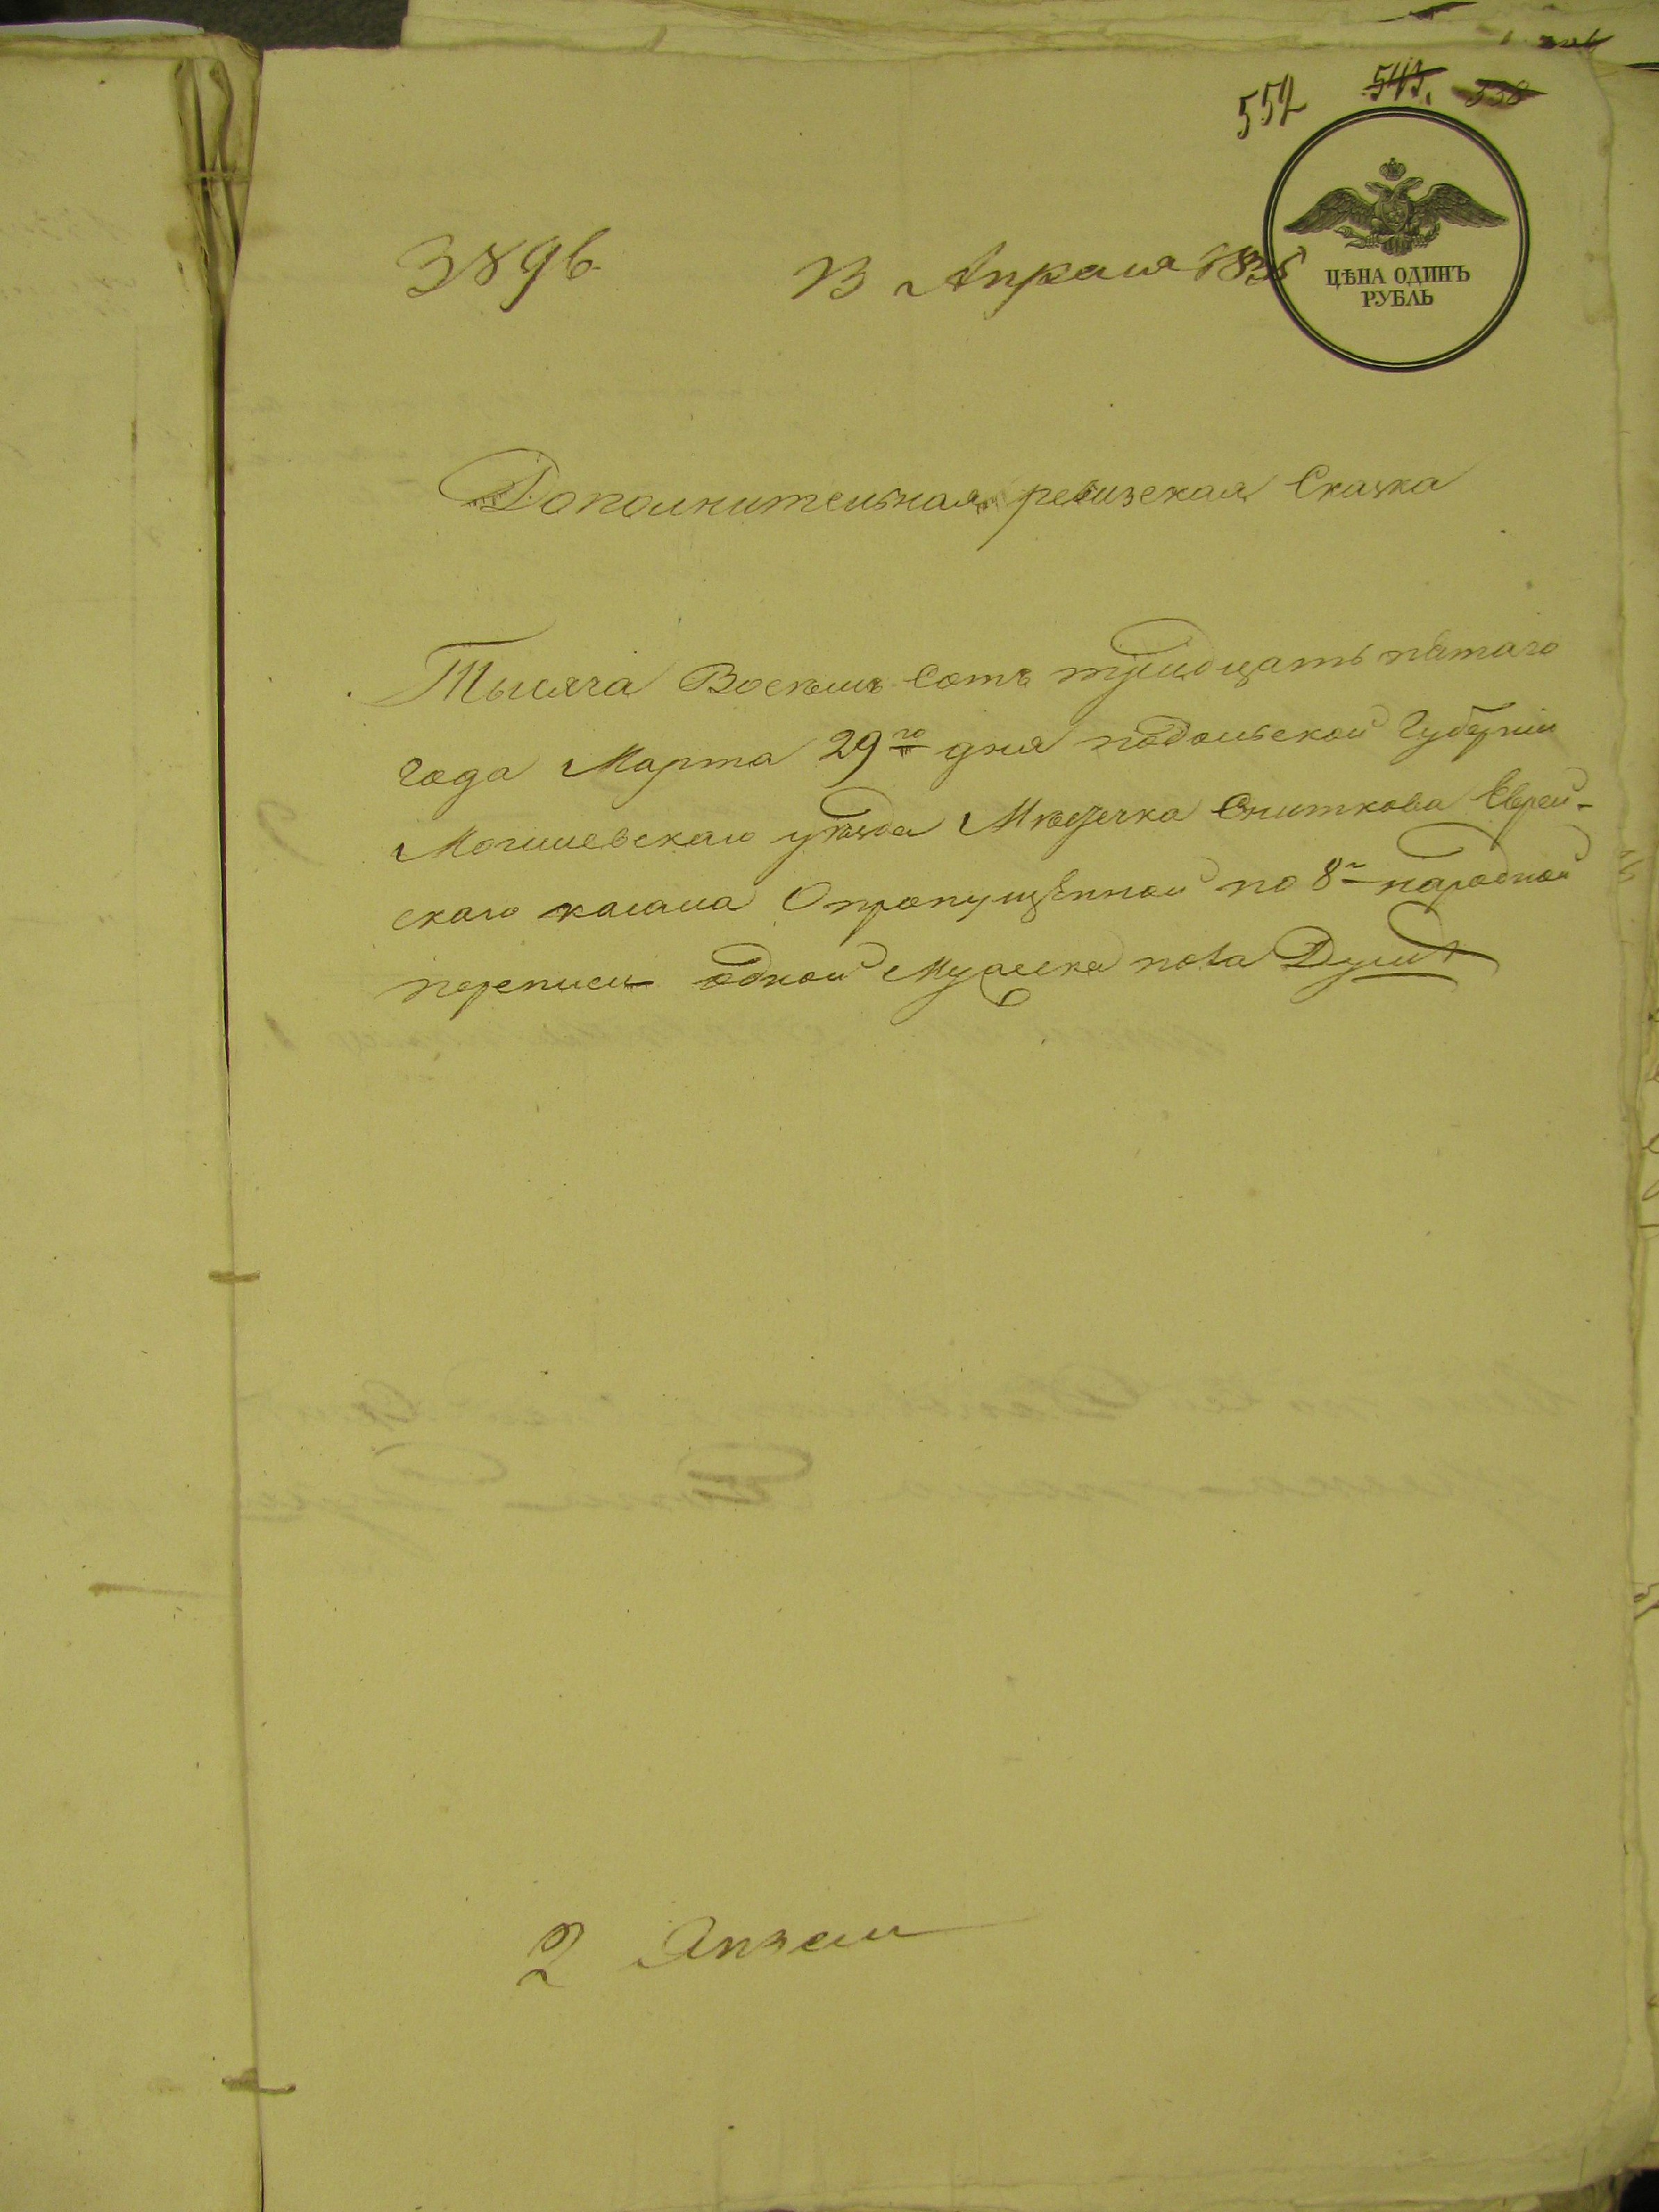 552 543. 338
ЦѢНА ОДИНЪ
РУБЛЬ
3896
13 Апреля 1835
Дополнительная ревизская Сказка
Тысяча Восемь Сотъ тридцать пятаго
года Марта 29го дня подольской Губерніи
Могилевскаго уѣзда Мѣстечка Сниткова Еврей-
скаго кагала О пропущенной по 8й народной
переписи одной Мужеска пола Душѣ
2